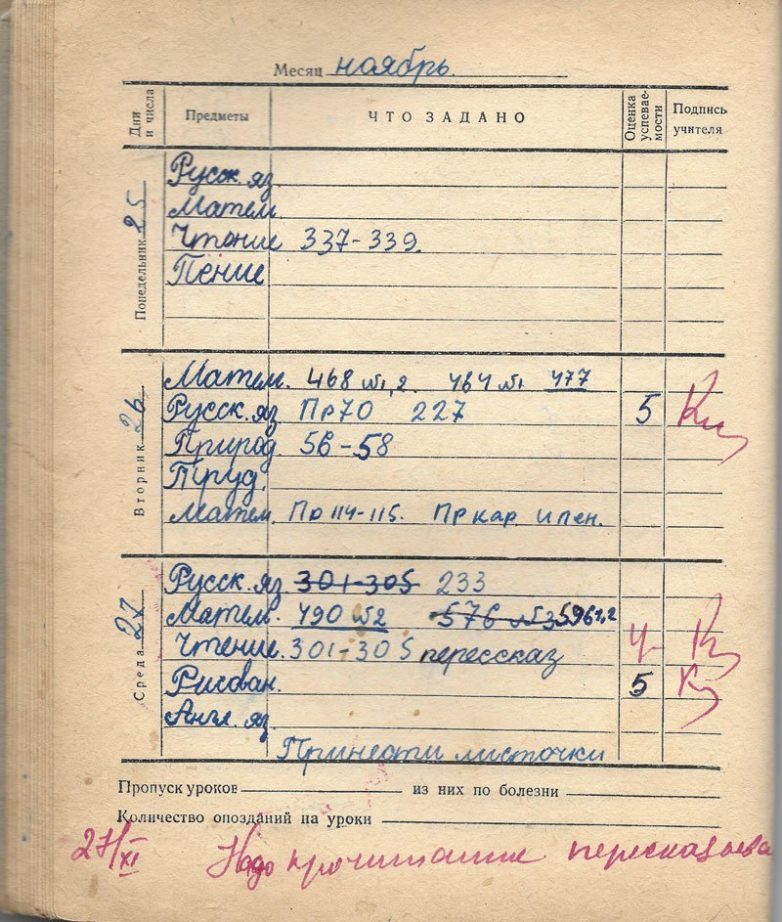 Месяц ноябрь.
Дни и числа Предметы ЧТО ЗАДАНО Оценка успеваемости Подпись учителя
Понедельник 25
Русск. яз.
Матем.
Чтение 337-339.
Пение
Вторник 26
Матем. 468 №1,2. 464 №1 477
Русск. яз. Пр 70 227 5
Природ. 56-58
Труд.
Матем. 114-115. Пр кар и пен.
Среда 27
Русск. яз. 301-305 233
Матем. 490 №2 576 №3 596 1,2
Чтение. 301-305 перессказ 4-
Рисован. 5
Англ. яз.
Принести листочки
Пропуск уроков из них по болезни
Количество опозданий на уроки
27/XI Надо прочитанные